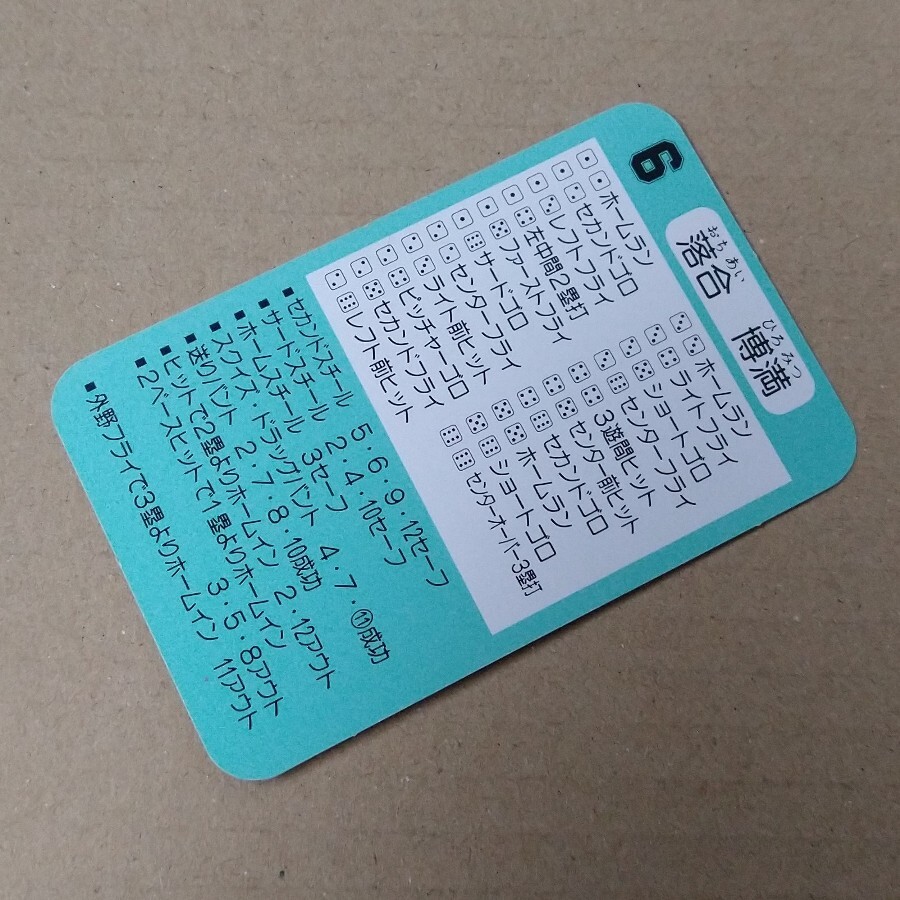 6
おち あい ひろ みつ
落合 博満
ホームラン
セカンドゴロ
レフトフライ
左中間2塁打
ファーストフライ
サードゴロ
センターフライ
ライト前ヒット
ピッチャーゴロ
セカンドフライ
レフト前ヒット
ホームラン
ライトフライ
ショートゴロ
センターフライ
3遊間ヒット
センター前ヒット
セカンドゴロ
ホームラン
ショートゴロ
センターオーバー3塁打
■セカンドスチール 5・6・9・12セーフ
■サードスチール 2・4・10セーフ
■ホームスチール 3セーフ
■スクイズ・ドラッグバント 4・7・⑪成功
■送りバント 2・7・8・10成功
■ヒットで2塁よりホームイン 2・12アウト
■2ベースヒットで1塁よりホームイン 3・5・8アウト
■外野フライで3塁よりホームイン 11アウト